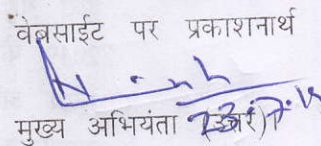 वेबसाईट पर प्रकाशनार्थ
मुख्य अभियंता (उत्तर)